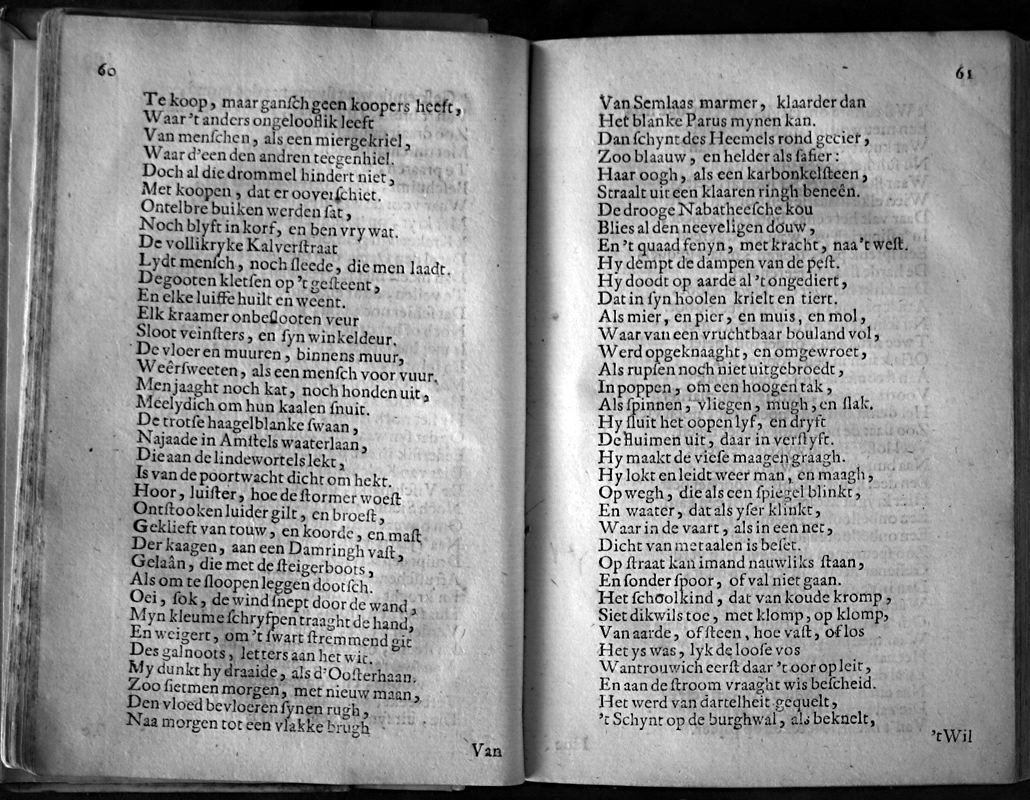 60
Te koop, maar ganſch geen koopers heeft,
Waar 't anders ongelooflik leeft
Van menſchen, als een miergekriel,
Waar d'een den andren teegenhiel.
Doch al die drommel hindert niet,
Met koopen, dat er ooverſchiet.
Ontelbre buiken werden ſat,
Noch blyft in korf, en ben vry wat.
De vollikryke Kalverſtraat
Lydt menſch, noch ſleede, die men laadt.
De gooten kletſen op 't geſteent,
En elke luiffe huilt en weent.
Elk kraamer onbeſlooten veur
Sloot veinſters, en ſyn winkeldeur.
De vloer en muuren, binnens muur,
Weêrſweeten, als een menſch voor vuur.
Men jaaght noch kat, noch honden uit,
Meelydich om hun kaalen ſnuit.
De trotſe haagelblanke ſwaan,
Najaade in Amſtels waaterlaan,
Die aan de lindewortels lekt,
Is van de poortwacht dicht om hekt.
Hoor, luiſter, hoe de ſtormer woeſt
Ontſtooken luider gilt, en broeſt,
Geklieft van touw, en koorde, en maſt
Der kaagen, aan een Damringh vaſt,
Gelaân, die met de ſteigerboots,
Als om te ſloopen leggen dootſch.
Oei, ſok, de wind ſnept door de wand,
Myn kleume ſchryfpen traaght de hand,
En weigert, om 't ſwart ſtremmend git
Des galnoots, letters aan het wit.
My dunkt hy draaide, als d'Ooſterhaan.
Zoo ſietmen morgen, met nieuw maan,
Den vloed bevloeren ſynen rugh,
Naa morgen tot een vlakke brugh
Van
61
Van Semlaas marmer, klaarder dan
Het blanke Parus mynen kan.
Dan ſchynt des Heemels rond gecier,
Zoo blaauw, en helder als ſafier:
Haar oogh, als een karbonkelſteen,
Straalt uit een klaaren ringh beneên.
De drooge Nabatheeſche kou
Blies al den neeveligen douw,
En 't quaad fenyn, met kracht, naa 't weſt.
Hy dempt de dampen van de peſt.
Hy doodt op aarde al 't ongediert,
Dat in ſyn hoolen krielt en tiert.
Als mier, en pier, en muis, en mol,
Waar van een vruchtbaar bouland vol,
Werd opgeknaaght, en omgewroet,
Als rupſen noch niet uitgebroedt,
In poppen, om een hoogen tak,
Als ſpinnen, vliegen, mugh, en ſlak.
Hy ſluit het oopen lyf, en dryft
De fluimen uit, daar in verſtyft.
Hy maakt de vieſe maagen graagh.
Hy lokt en leidt weer man, en maagh,
Op wegh, die als een ſpiegel blinkt,
En waater, dat als yſer klinkt,
Waar in de vaart, als in een net,
Dicht van metaalen is beſet.
Op ſtraat kan imand nauwliks ſtaan,
En ſonder ſpoor, of val niet gaan.
Het ſchoolkind, dat van koude kromp,
Siet dikwils toe, met klomp, op klomp,
Van aarde, of ſteen, hoe vaſt, of los
Het ys was, lyk de looſe vos
Wantrouwich eerſt daar 't oor op leit,
En aan de ſtroom vraaght wis beſcheid.
Het werd van dartelheit gequelt,
't Schynt op de burghwal, als beknelt,
't Wil